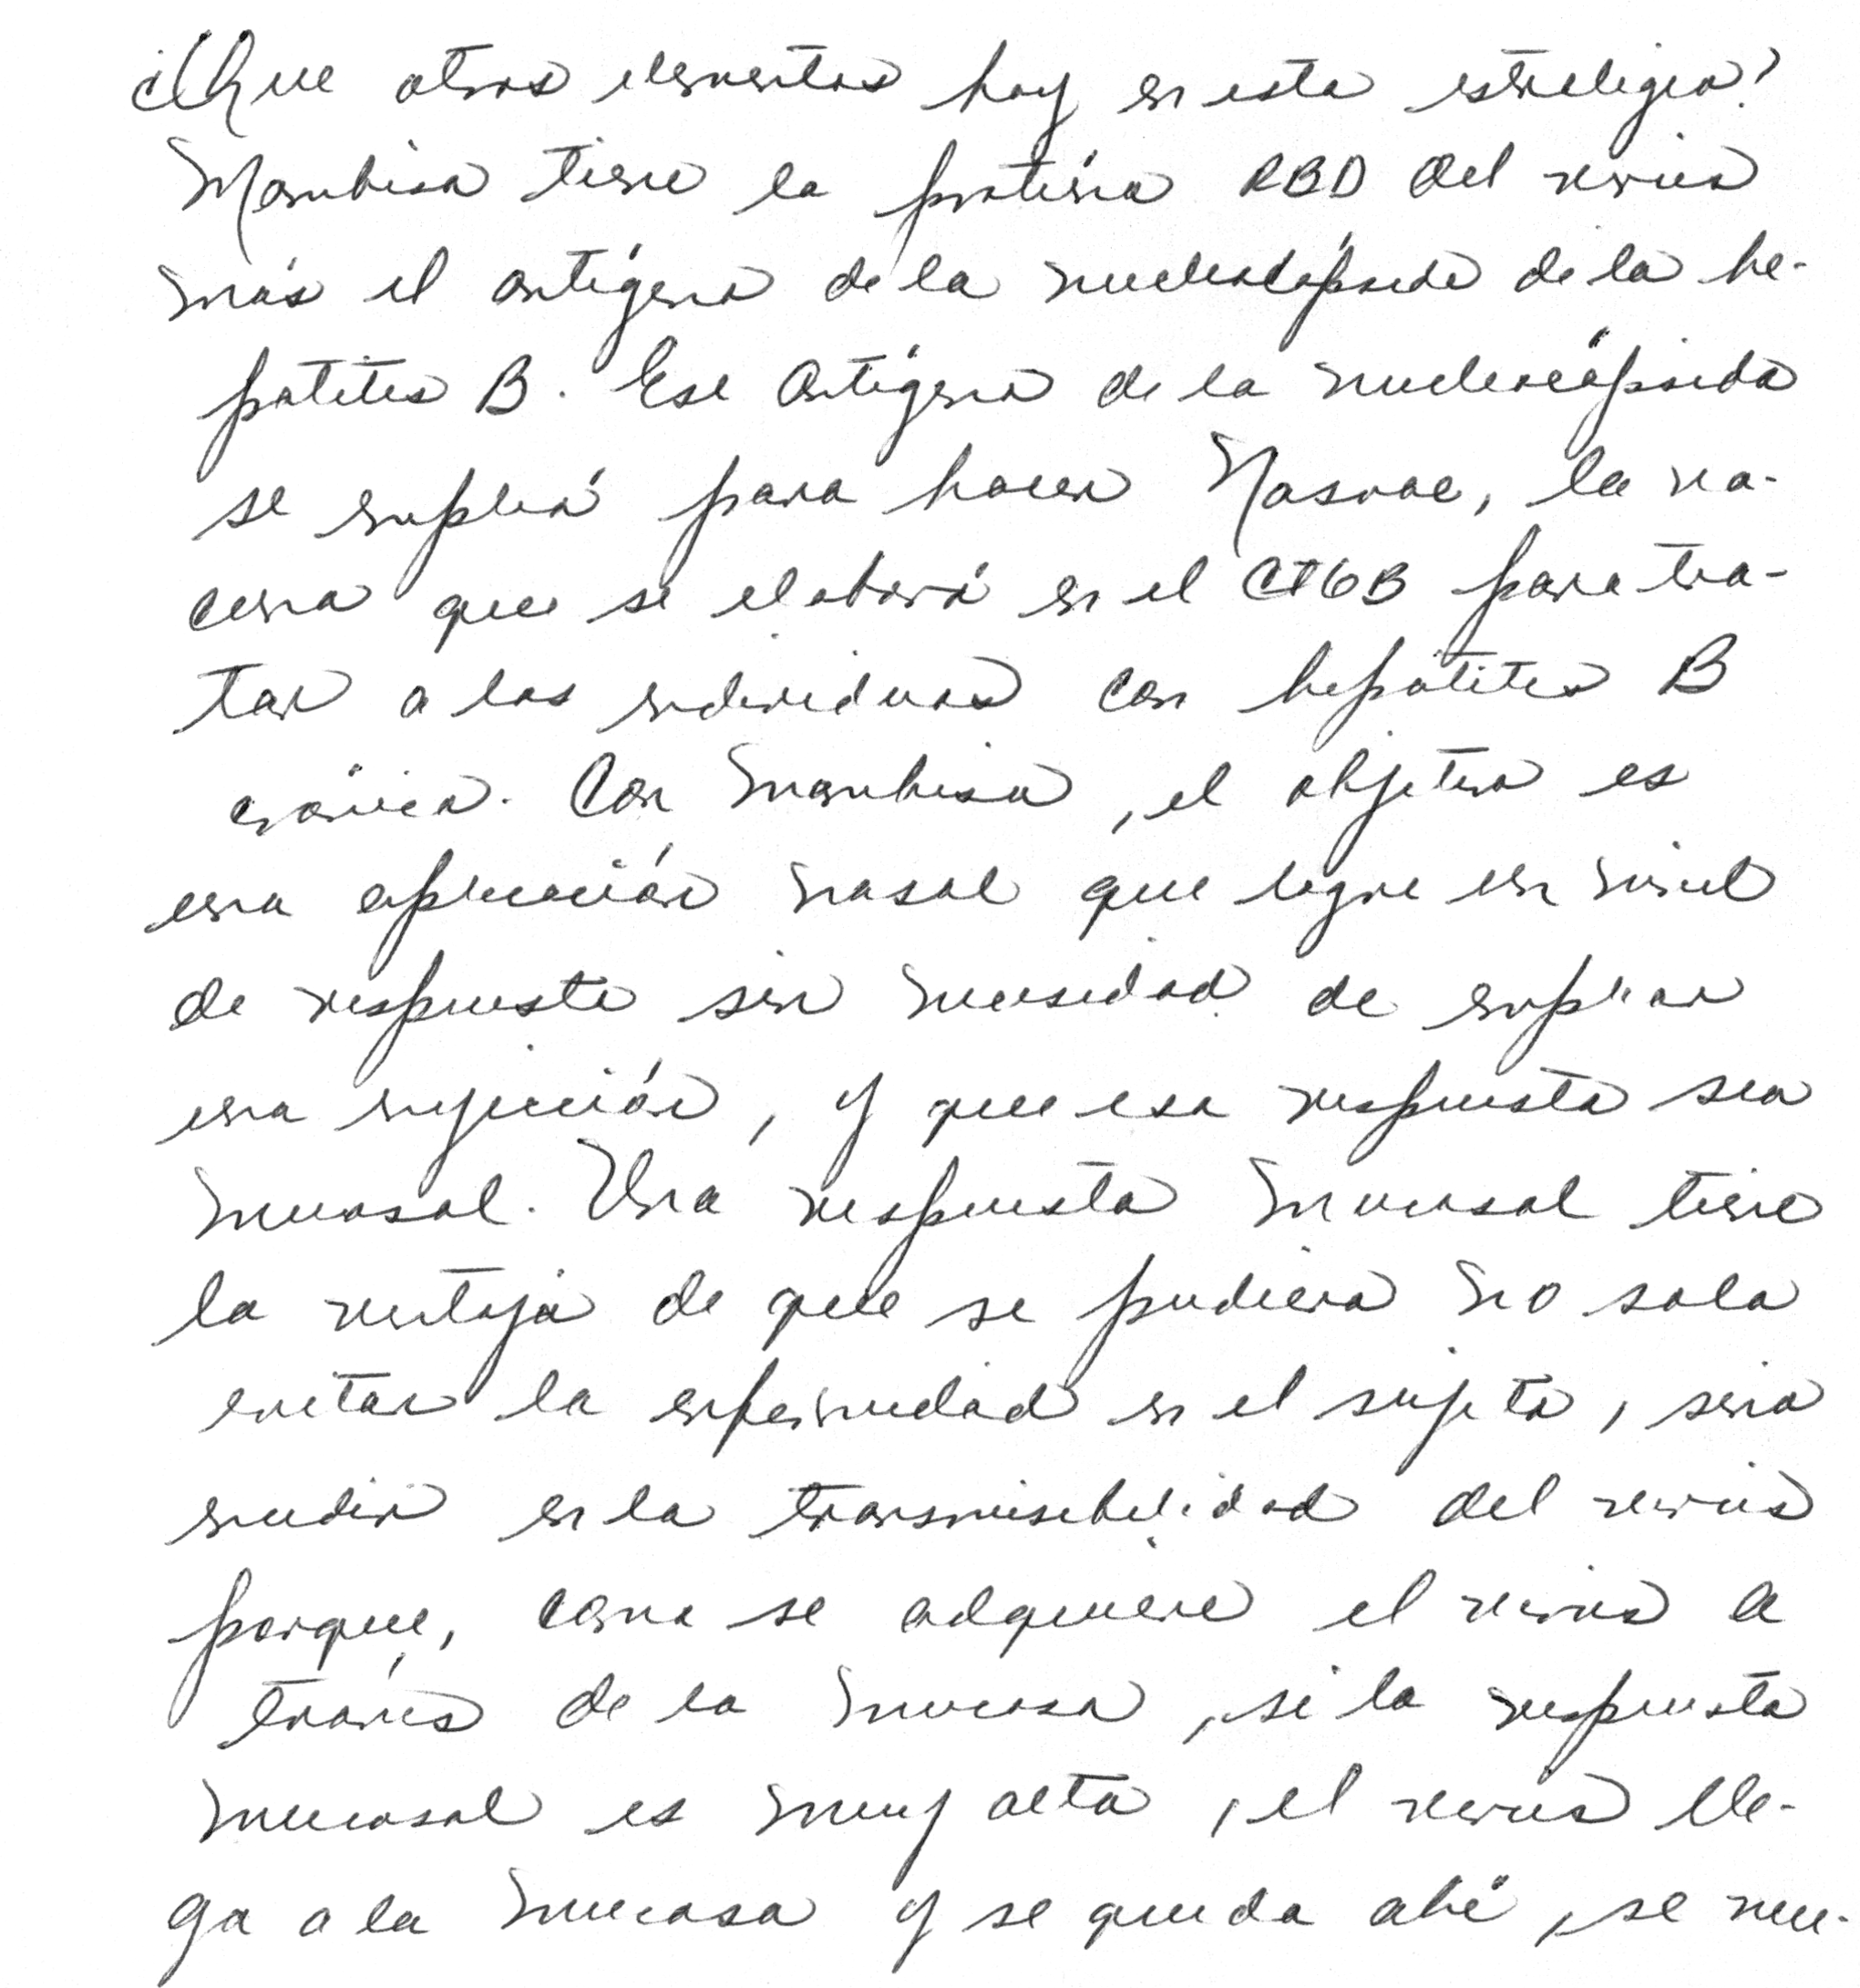 ¿Que otros elementos hay en esta estrategia?
Mambisa tiene la proteína RBD del virus
más el antígeno de la nucleocápside de la he-
patitis B. Ese antígeno de la nucleocápsida
se empleó para hacer Nasvac, la va-
cuna que se elaboró en el CIGB para tra-
tar a los individuos con hepatitis B
crónica. Con Mambisa, el objetivo es
una aplicación nasal que logre un nivel
de respuesta sin necesidad de emplear
una inyección, y que esa respuesta sea
mucosal. Una respuesta mucosal tiene
la ventaja de que se pudiera no solo
evitar la enfermedad en el sujeto, sino
incidir en la transmisibilidad del virus
porque, como se adquiere el virus a
través de la mucosa, si la respuesta
mucosal es muy alta, el virus lle-
ga a la mucosa y se queda ahí, se neu-